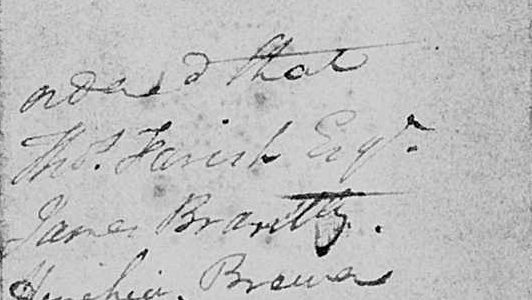 ordered that
Thos. Farish Esqr.
James Brantly.
Brewer